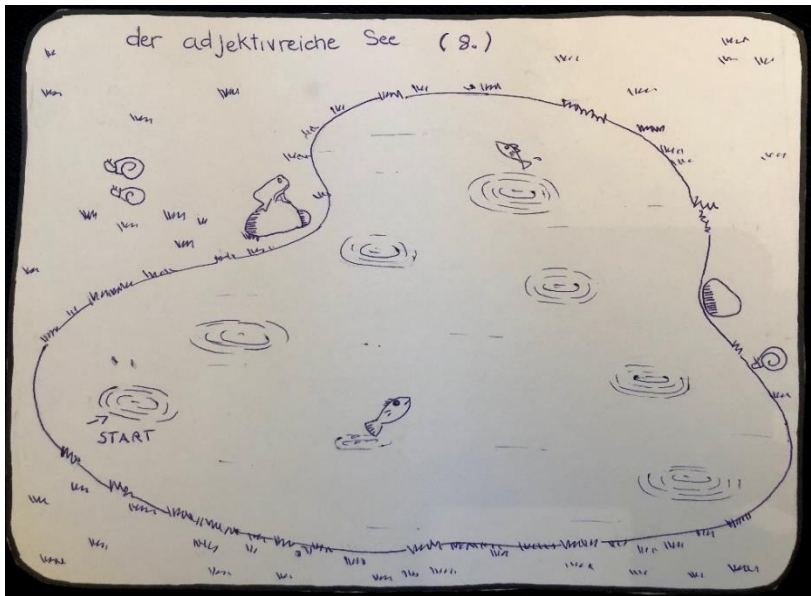 der adjektivreiche See (8.)
START